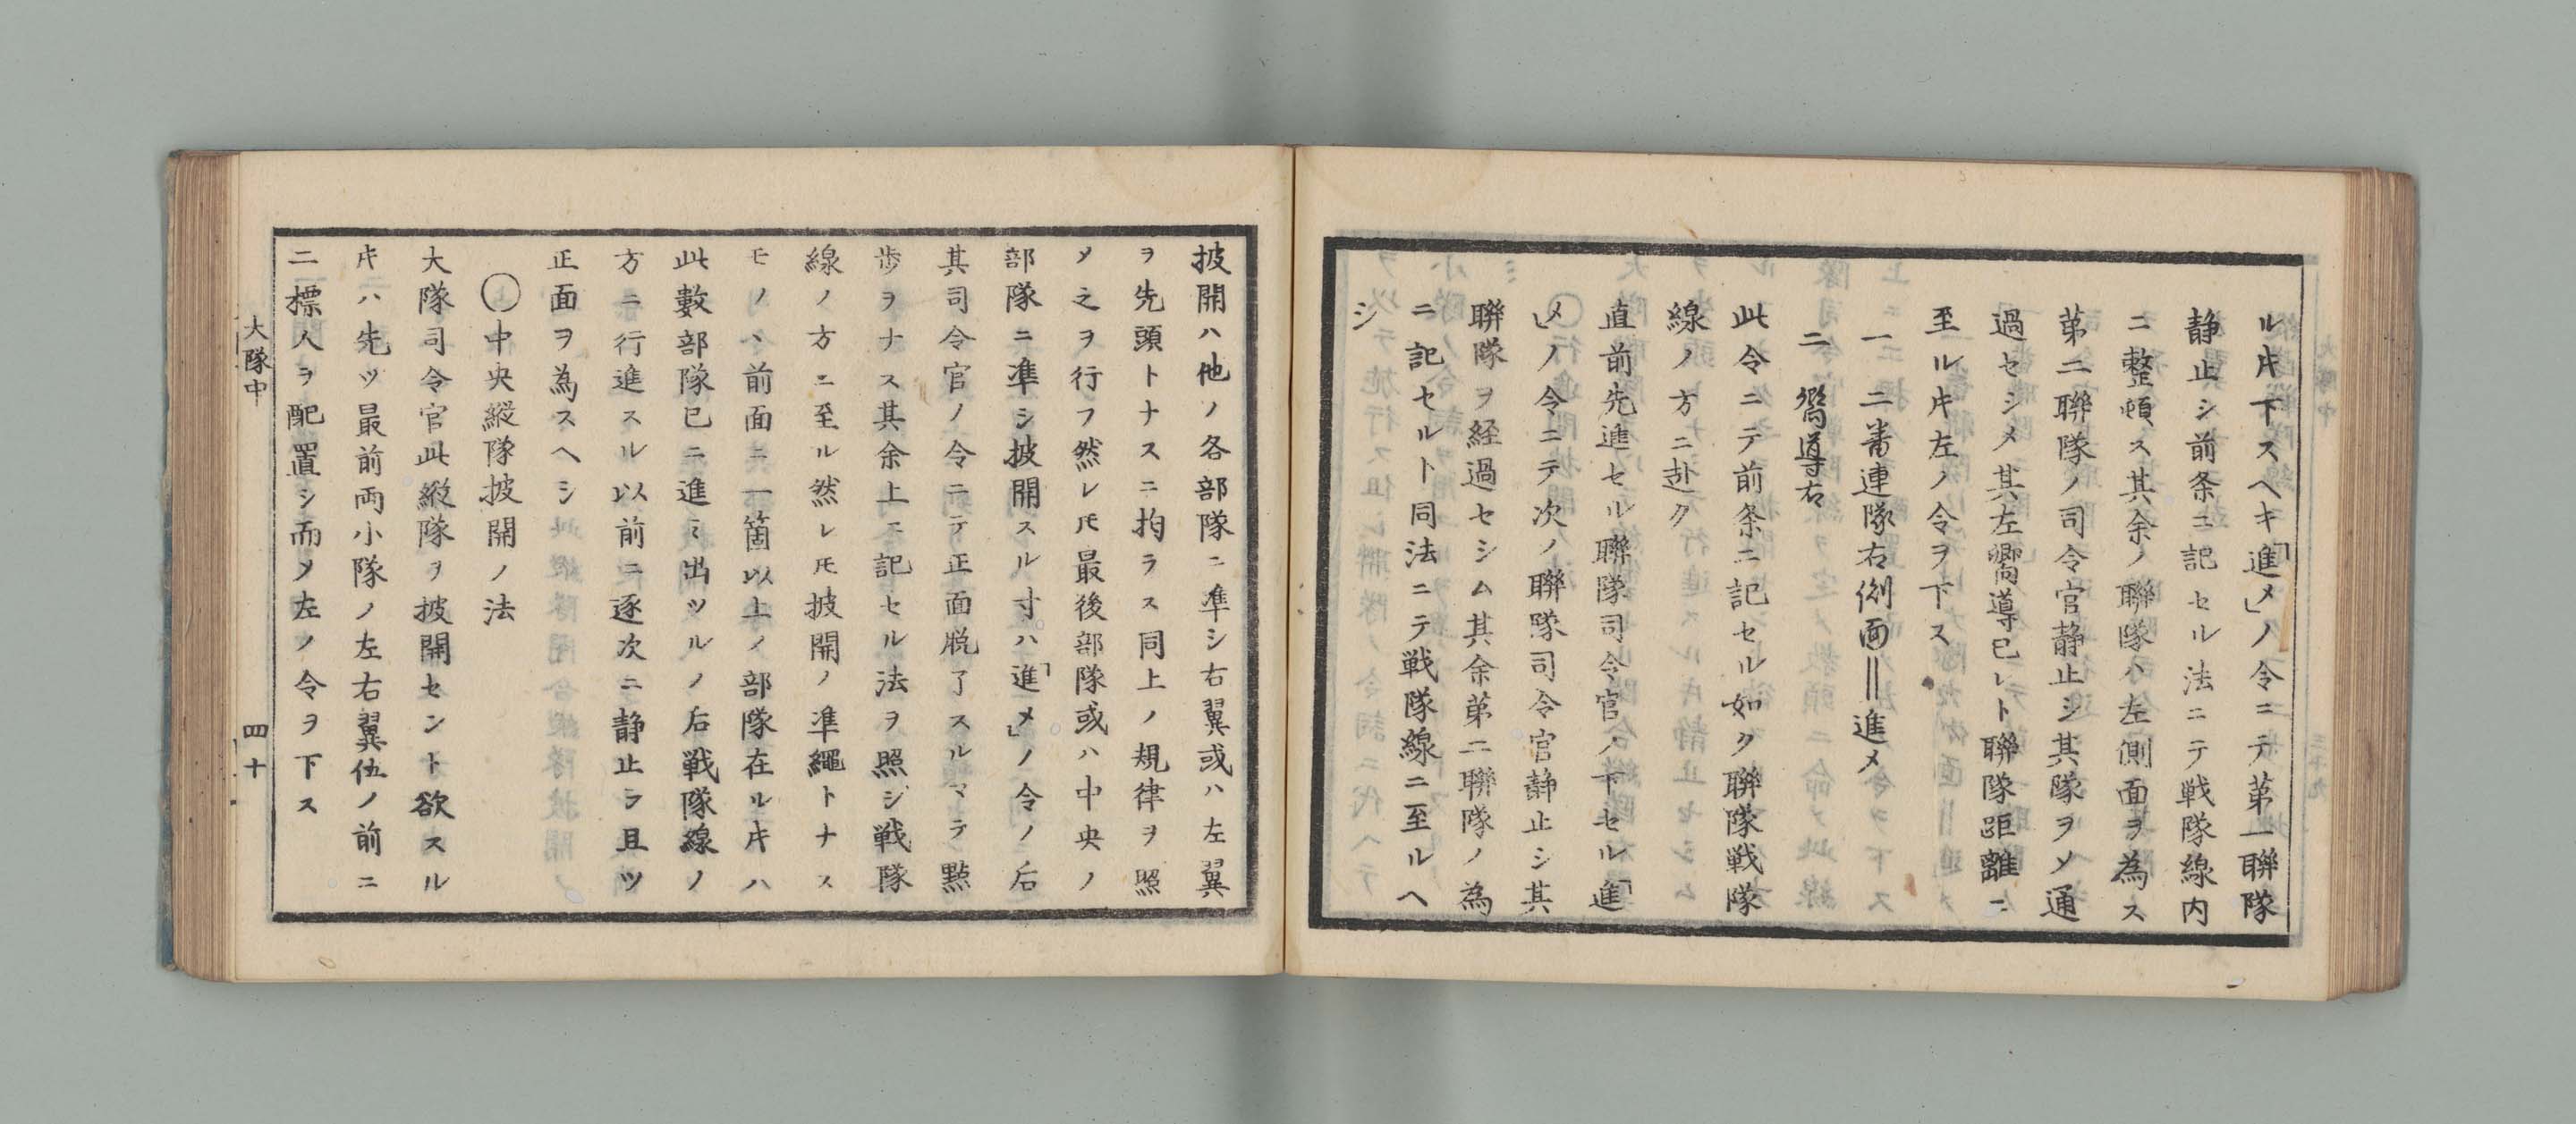 ル𪜈下スヘキ「進メ」ノ令ニテ第一聯隊
静止シ前条ニ記セル法ニテ戦隊線内
ニ整頓ス其余ノ聯隊ハ左側面ヲ為ス
第二聯隊ノ司令官静止シ其隊ヲメ通
過セシメ其左嚮導已レト聯隊距離ニ
至ル𪜈左ノ令ヲ下ス
一 二番連隊右側面‖進メ
二 嚮導右
此令ニテ前条ニ記セル如ク聯隊戦隊
線ノ方ニ赴ク
直前先進セル聯隊司令官ノ下セル「進
メ」ノ令ニテ次ノ聯隊司令官静止シ其
聯隊ヲ経過セシム其余第二聯隊ノ為
ニ記セルト同法ニテ戦隊線ニ至ルヘ
シ
披開ハ他ノ各部隊ニ準シ右翼或ハ左翼
ヲ先頭トナスニ拘ラス同上ノ規律ヲ照
メ之ヲ行フ然レ𪜈最後部隊或ハ中央ノ
部隊ニ準シ披開スル寸ハ「進メ」ノ令ノ后
其司令官ノ令ニテ正面脱了スルマテ㸃
歩ヲナス其余上ニ記セル法ヲ照シ戦隊
線ノ方ニ至ル然レ𪜈披開ノ準縄トナス
モノヽ前面ニ一箇以上ノ部隊在ル𪜈ハ
此數部隊已ニ進ミ出ツルノ后戦隊線ノ
方ニ行進スル以前ニ逐次ニ静止ラ且ツ
正面ヲ為スヘシ
〇中央縦隊披開ノ法
大隊司令官此縦隊ヲ披開セント欲スル
𪜈ハ先ツ最前両小隊ノ左右翼伍ノ前ニ
二標人ヲ配置シ而メ左ノ令ヲ下ス
大隊中
四十